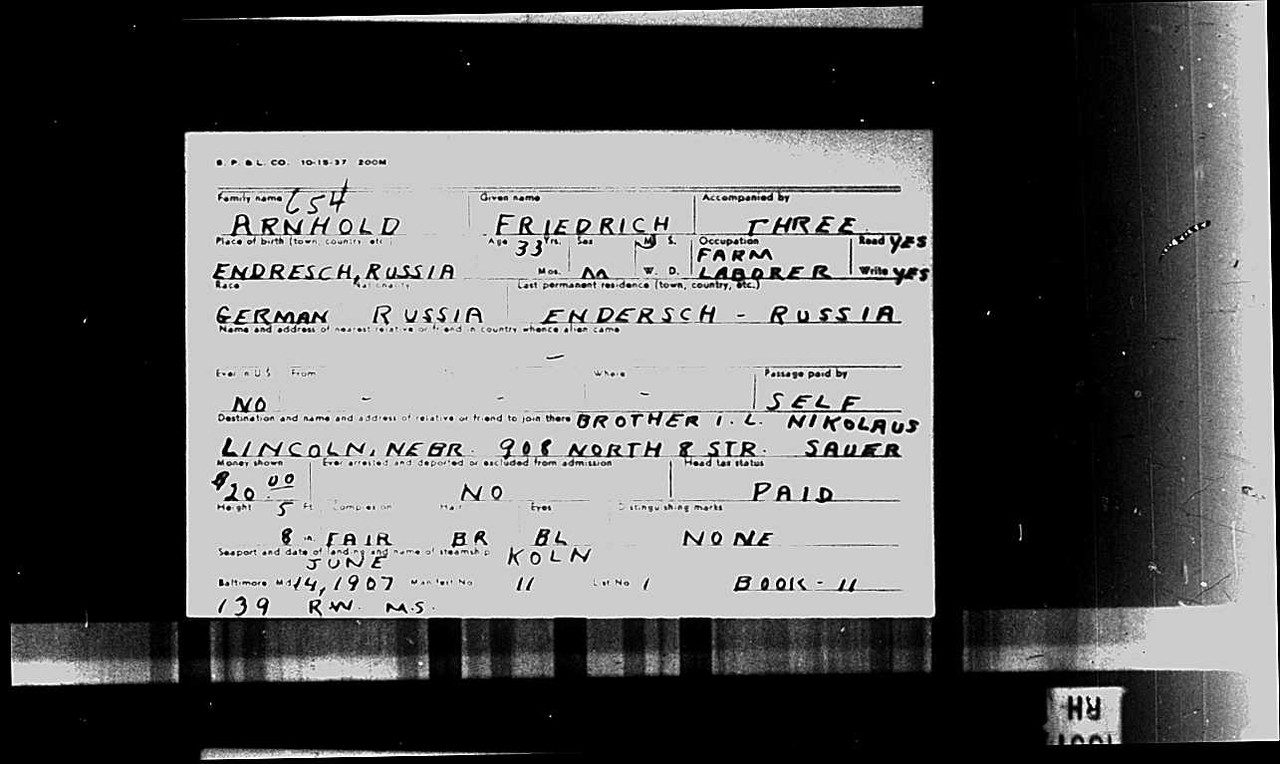 B. P. & L. CO. 10-15-37 200M
Family name 654 Given name Accompanied by
ARNHOLD FRIEDRICH THREE
Place of birth (town, country etc.) Age 33 Yrs. Sex M S. Occupation Read YES
FARM
ENDRESCH, RUSSIA Mos. M W. D. LABORER Write YES
Race Nationality Last permanent residence (town, country, etc.)
GERMAN RUSSIA ENDERSCH - RUSSIA
Name and address of nearest relative or friend in country whence alien came
-
Ever in U.S. From To Where Passage paid by
NO - - - SELF
Destination and name and address of relative or friend to join there BROTHER I. L. NIKOLAUS
LINCOLN, NEBR. 908 NORTH 8 STR. SAUER
Money shown Ever arrested and deported or excluded from admission Head tax status
$20.00 NO PAID
Height 5 Ft. Complexion Hair Eyes Distinguishing marks
8 in. FAIR BR BL NONE
Seaport and date of landing and name of steamship KOLN
JUNE
Baltimore, Md. 14, 1907 Manifest No. 11 List No. 1 BOOK - 11
139 R.W. M.S.
RH